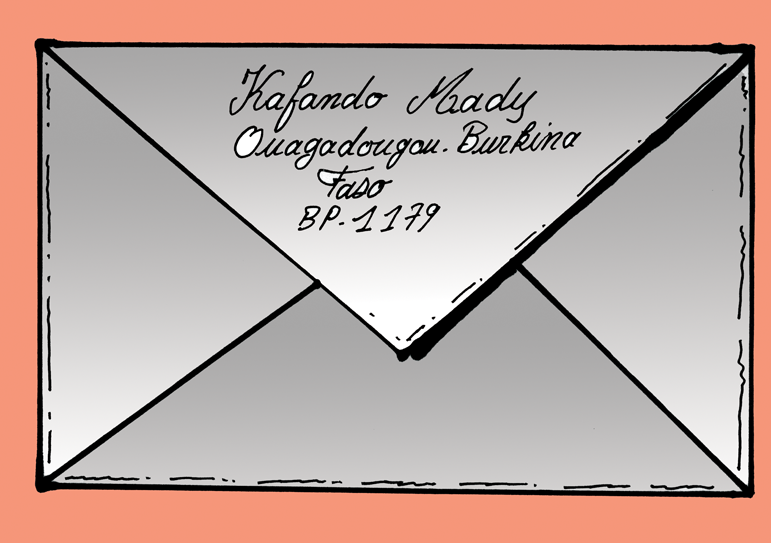 Kafando Mady
Ouagadougou. Burkina
Faso
BP-1179